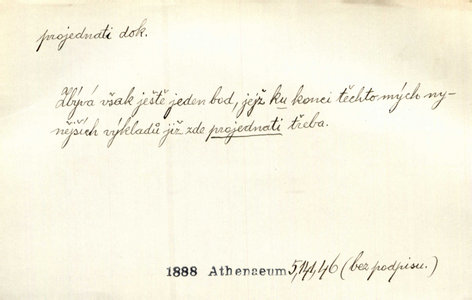 projednati dok.
Zbývá však ještě jeden bod, jejž ku konci těchto mých ny-
nějších výkladů již zde projednati třeba.
1888 Athenaeum 5,141,46 (bez podpisu.)